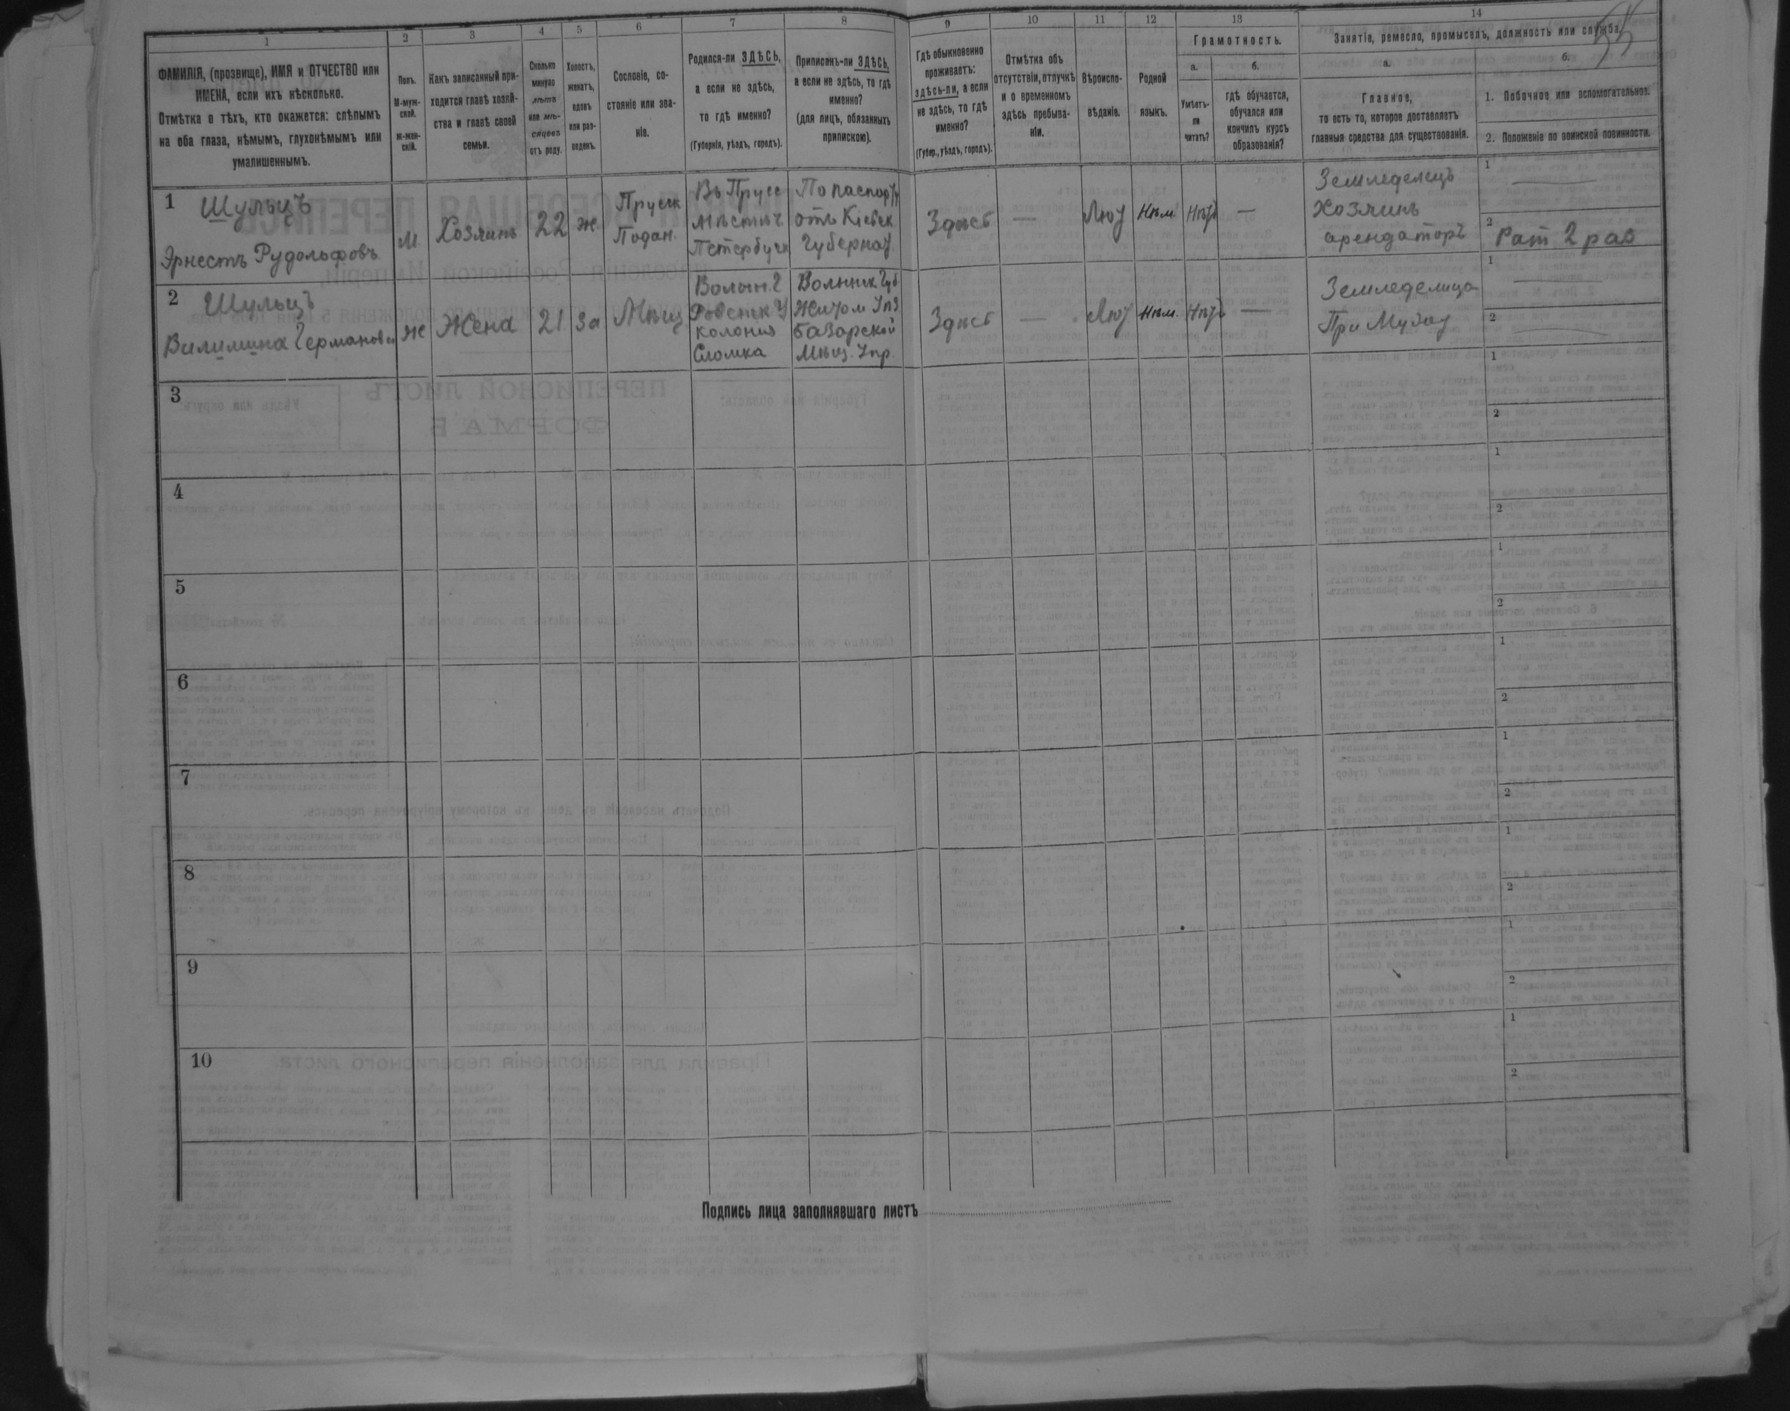 1 2 3 4 5 6 7 8 9 10 11 12 13 14
ФАМИЛІЯ, (прозвище), ИМЯ и ОТЧЕСТВО или
ИМЕНА, если ихъ нѣсколько.
Отмѣтка о тѣхъ, кто окажется: слѣпымъ
на оба глаза, нѣмымъ, глухонѣмымъ или
умалишеннымъ.
Полъ.
М-муж-
ской.
ж-жен-
скій.
Какъ записанный при-
ходится главѣ хозяй-
ства и главѣ своей
семьи.
Сколько
минуло
лѣтъ
или мѣ-
сяцевъ
отъ роду.
Холостъ,
женатъ,
вдовъ
или раз-
веденъ.
Сословіе, со-
стояніе или зва-
ніе.
Родился-ли ЗДѢСЬ,
а если не здѣсь,
то гдѣ именно?
(Губернія, уѣздъ, городъ).
Приписанъ-ли ЗДѢСЬ,
а если не здѣсь, то гдѣ
именно?
(для лицъ, обязанныхъ
припискою).
Гдѣ обыкновенно
проживаетъ:
здѣсь-ли, а если
не здѣсь, то гдѣ
именно?
(Губер., уѣздъ, городъ).
Отмѣтка объ
отсутствіи, отлучкѣ
и о временномъ
здѣсь пребыва-
ніи.
Вѣроиспо-
вѣданіе.
Родной
языкъ.
Грамотность.
а.
Умѣетъ-
ли
читать?
б.
гдѣ обучается,
обучался или
кончилъ курсъ
образованія?
Занятіе, ремесло, промыселъ, должность или служба.
а.
Главное,
то есть то, которое доставляетъ
главныя средства для существованія.
б.
1. Побочное или вспомогательное.
2. Положеніе по воинской повинности.
1 Шульцъ
Эрнестъ Рудольфовъ
М
Хозяинъ
22
ж
Прусск
Подан.
Въ Прусс
Мѣстеч
По паспорту
отъ Кіевск
Губернат
Здѣсь
—
Лют
Нѣм
Нѣтъ
—
Земледелецъ
Хозяинъ
арендаторъ
1 —
2 Рат 2 раз
2 Шульцъ
Вилимина Германовна
Ж
Жена
21
За
Мѣщ
Волын. г
Ровенск у
колония
Сломка
Волынск. Губ
Житом Уѣз
базарской
Мѣщ. Упр.
Здѣсь
—
Лют
Нѣм.
Нѣтъ
—
Земледелица
При Мужу
1 —
2 —
3
1
2
4
1
2
5
1
2
6
1
2
7
1
2
8
1
2
9
1
2
10
1
2
Подпись лица заполнявшаго листъ